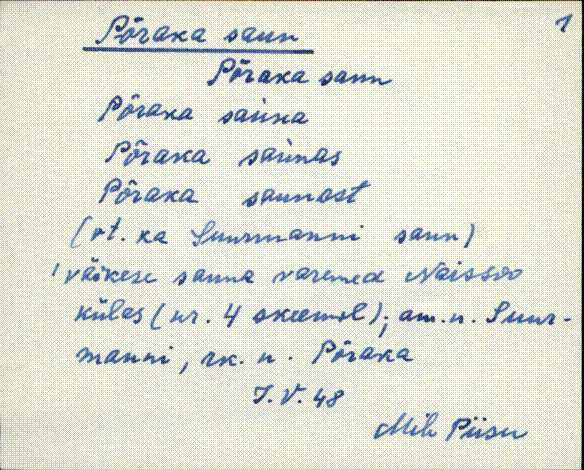 1
Põraka saun
Põraka saun
Põraka sauna
Põraka saunas
Põraka saunast
(vt. ka Suurmanni saun)
väikese sauna varemed Naissoo
külas (nr. 4 skeemil); am. n. Suur-
manni, rk. n. Põraka
J. V. 48
Piisu